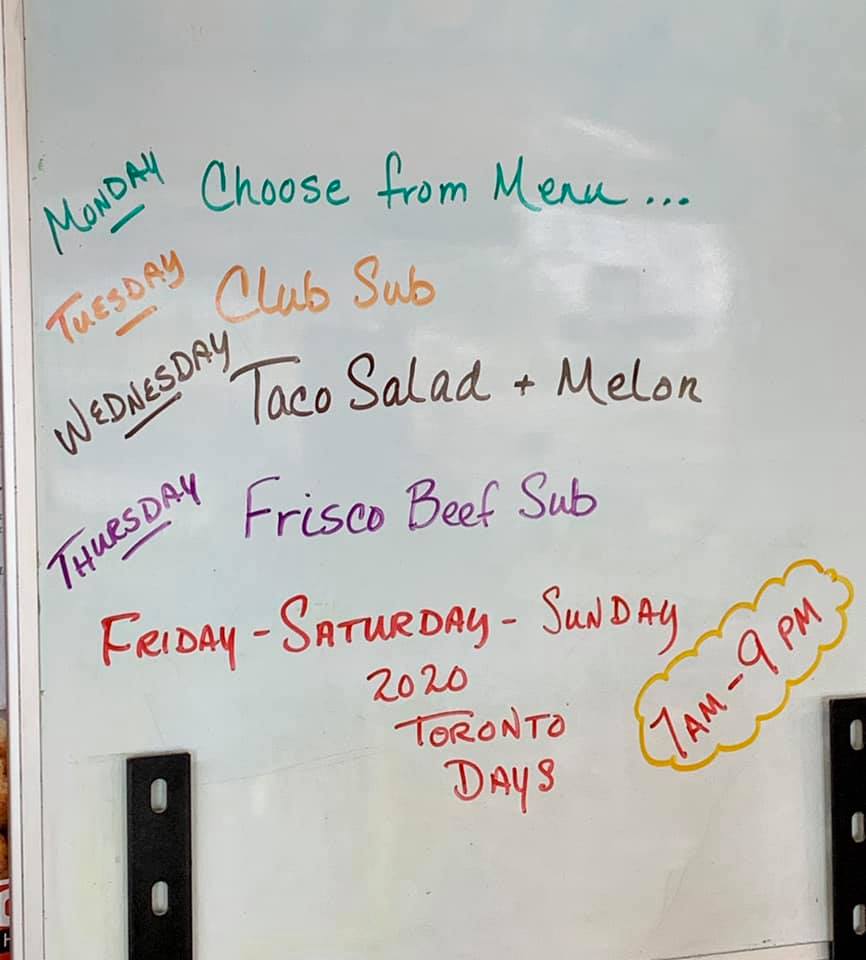 MONDAY Choose from Menu...
TUESDAY Club Sub
WEDNESDAY Taco Salad + Melon
THURSDAY Frisco Beef Sub
FRIDAY - SATURDAY - SUNDAY
2020
TORONTO
DAYS
7AM - 9 PM